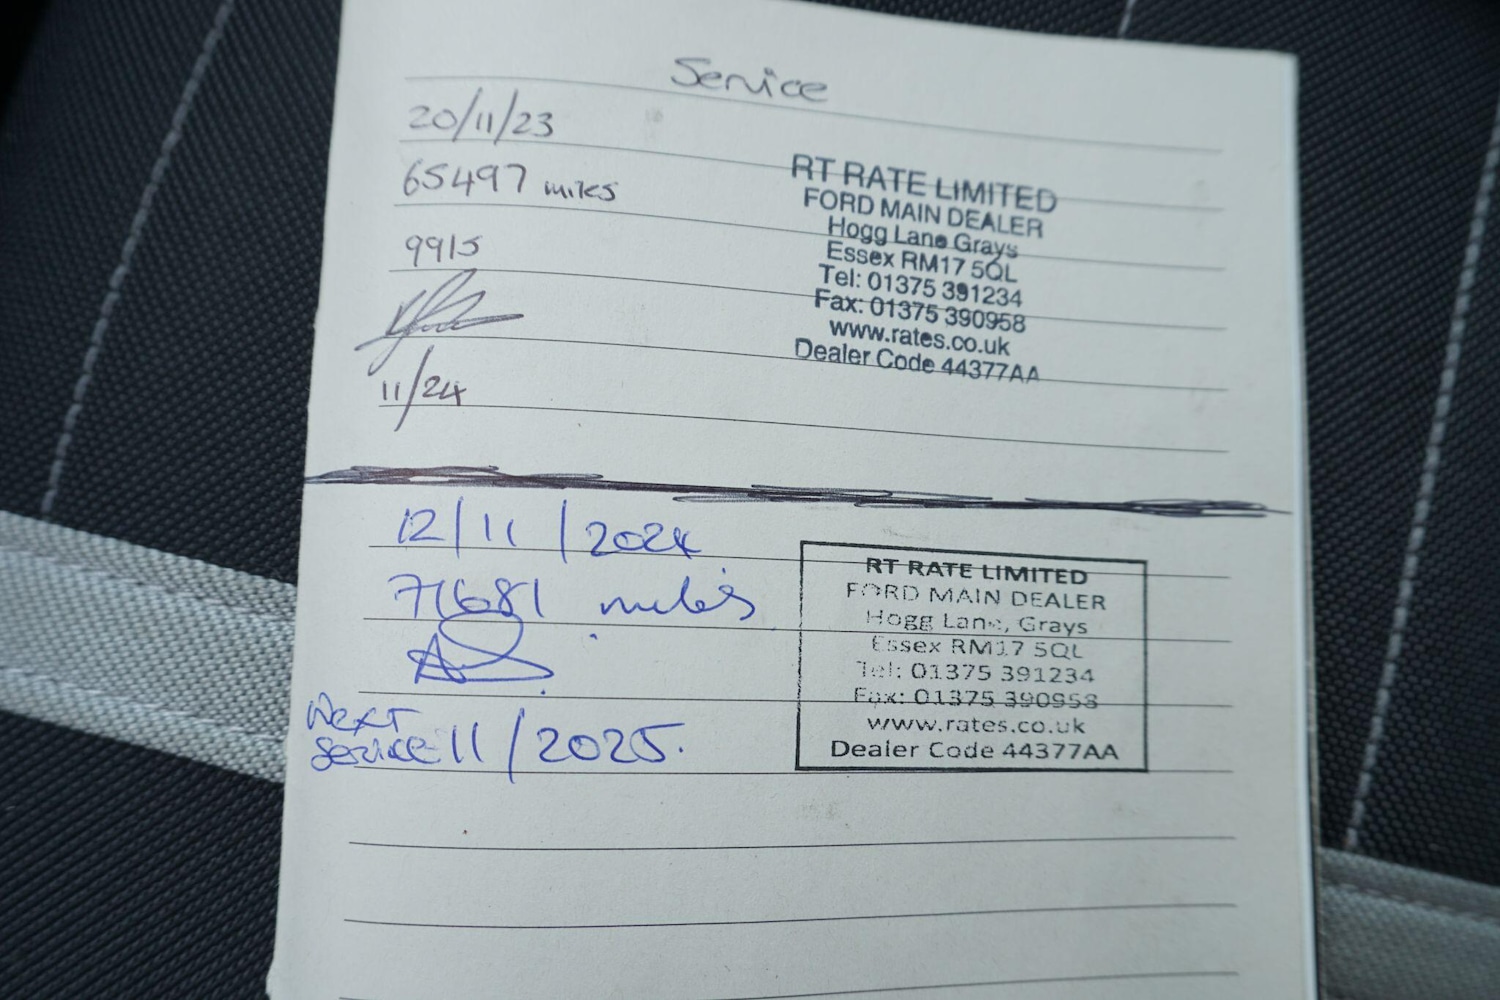 Service
20/11/23
65497 miles
9915
11/24
RT RATE LIMITED
FORD MAIN DEALER
Hogg Lane Grays
Essex RM17 5QL
Tel: 01375 391234
Fax: 01375 390958
www.rates.co.uk
Dealer Code 44377AA
12/11/2024
71681 miles
Next
service 11/2025.
RT RATE LIMITED
FORD MAIN DEALER
Hogg Lane, Grays
Essex RM17 5QL
Tel: 01375 391234
Fax: 01375 390958
www.rates.co.uk
Dealer Code 44377AA